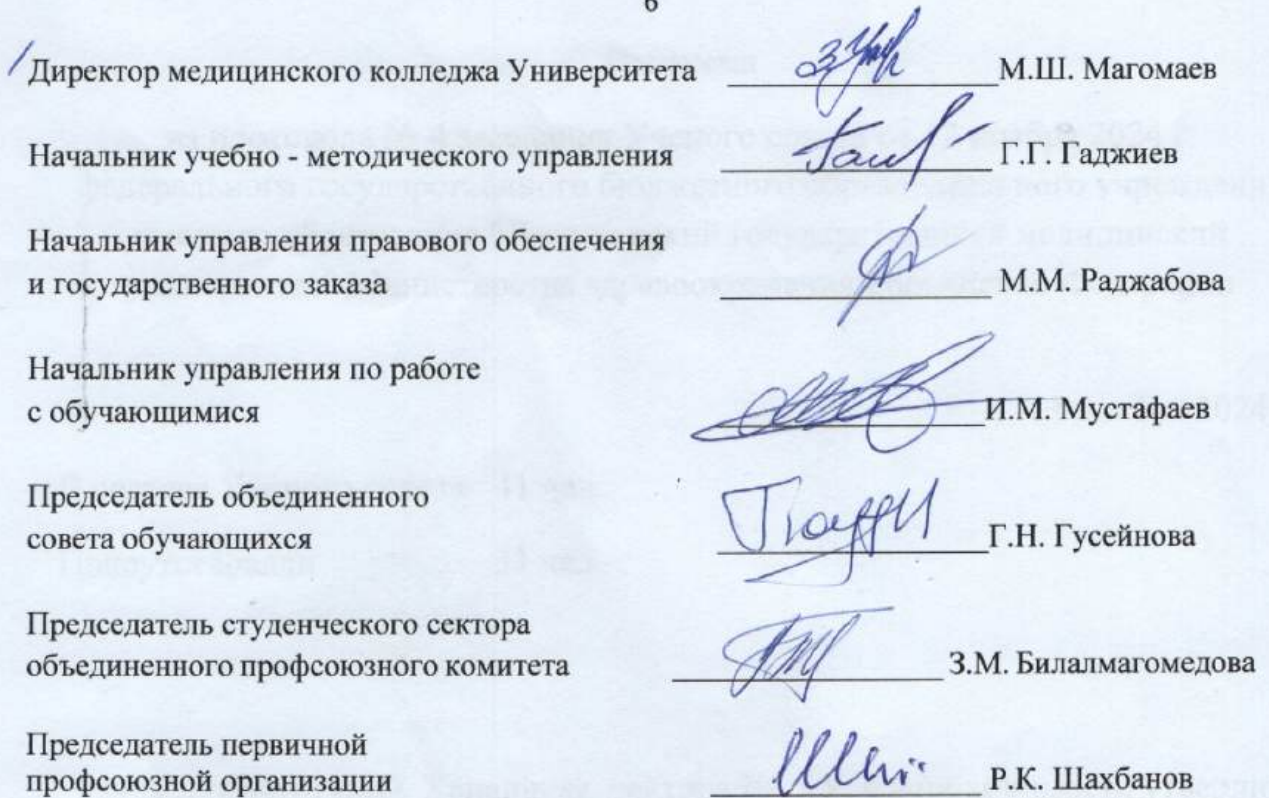 6
Директор медицинского колледжа Университета М.Ш. Магомаев
Начальник учебно - методического управления Г.Г. Гаджиев
Начальник управления правового обеспечения
и государственного заказа М.М. Раджабова
Начальник управления по работе
с обучающимися И.М. Мустафаев
Председатель объединенного
совета обучающихся Г.Н. Гусейнова
Председатель студенческого сектора
объединенного профсоюзного комитета З.М. Билалмагомедова
Председатель первичной
профсоюзной организации Р.К. Шахбанов